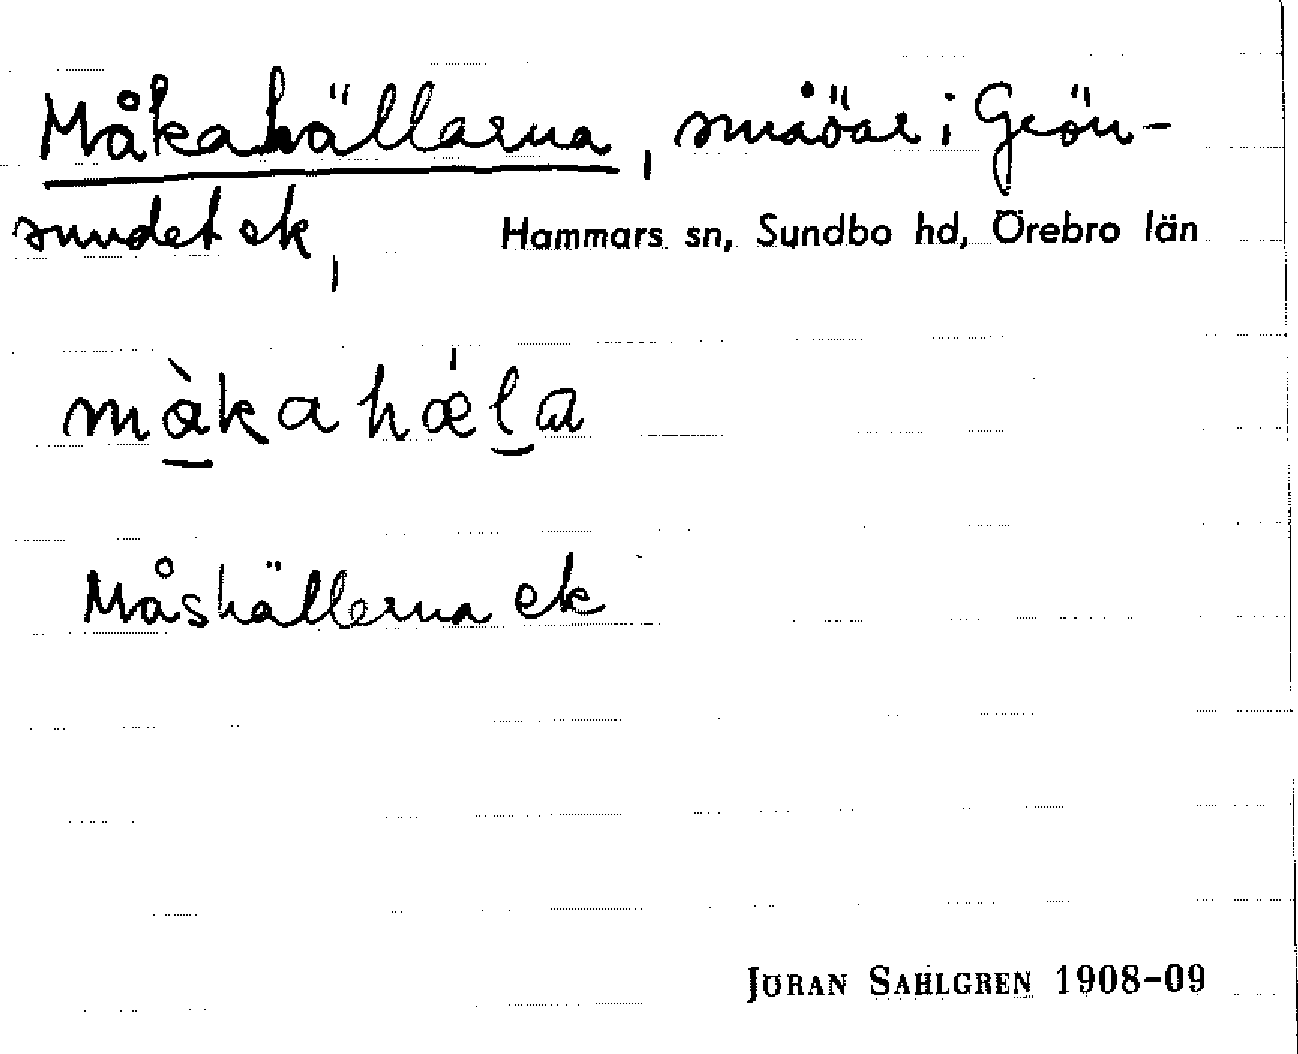 Måkahällarna, småöar i Grön-
sundet ek, Hammars sn, Sundbo hd, Örebro län
må̱̀kahǽl̠a
Måshällerna ek
JÖRAN SAHLGREN 1908–09